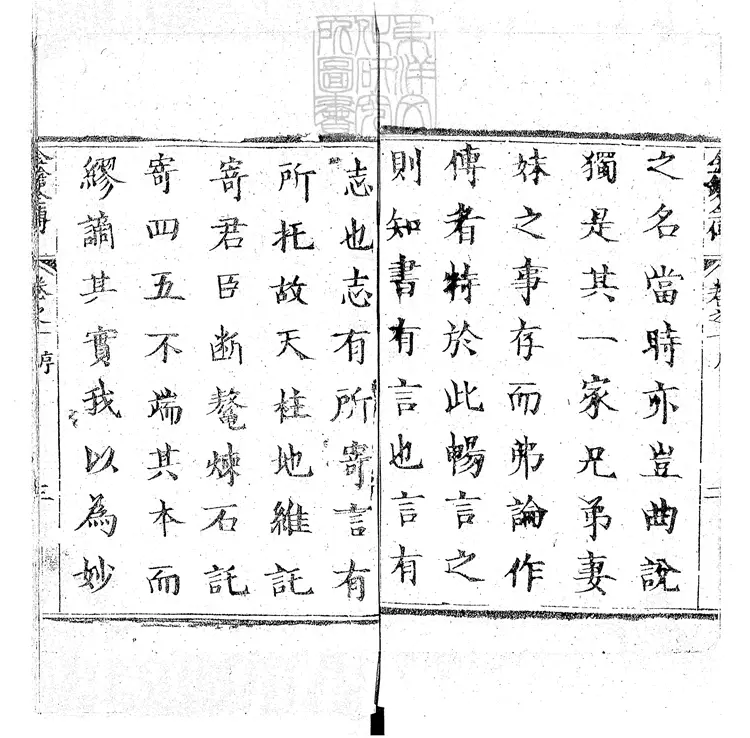 之名當時亦豈曲說
獨是其一家兄弟妻
妹之事存而弗論作
傳者特於此暢言之
則知書有言也言有
志也志有所寄言有
所托故天柱地維託
寄君臣断鼇煉石託
寄四五不端其本而
繆謫其實我以為妙
卷之一 序 三